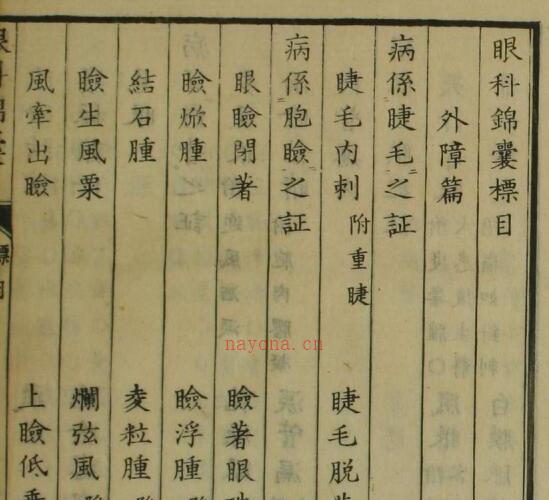 眼科錦囊標目
外障篇
病係睫毛之証
睫毛内刺 附重睫 睫毛脱
病係胞瞼之証
眼瞼閉著 瞼著眼
瞼焮腫 瞼浮腫
結石腫 麦粒腫
瞼生風粟 爛弦風
風牽出瞼 上瞼低
眼科錦囊
標目
nayona.cn